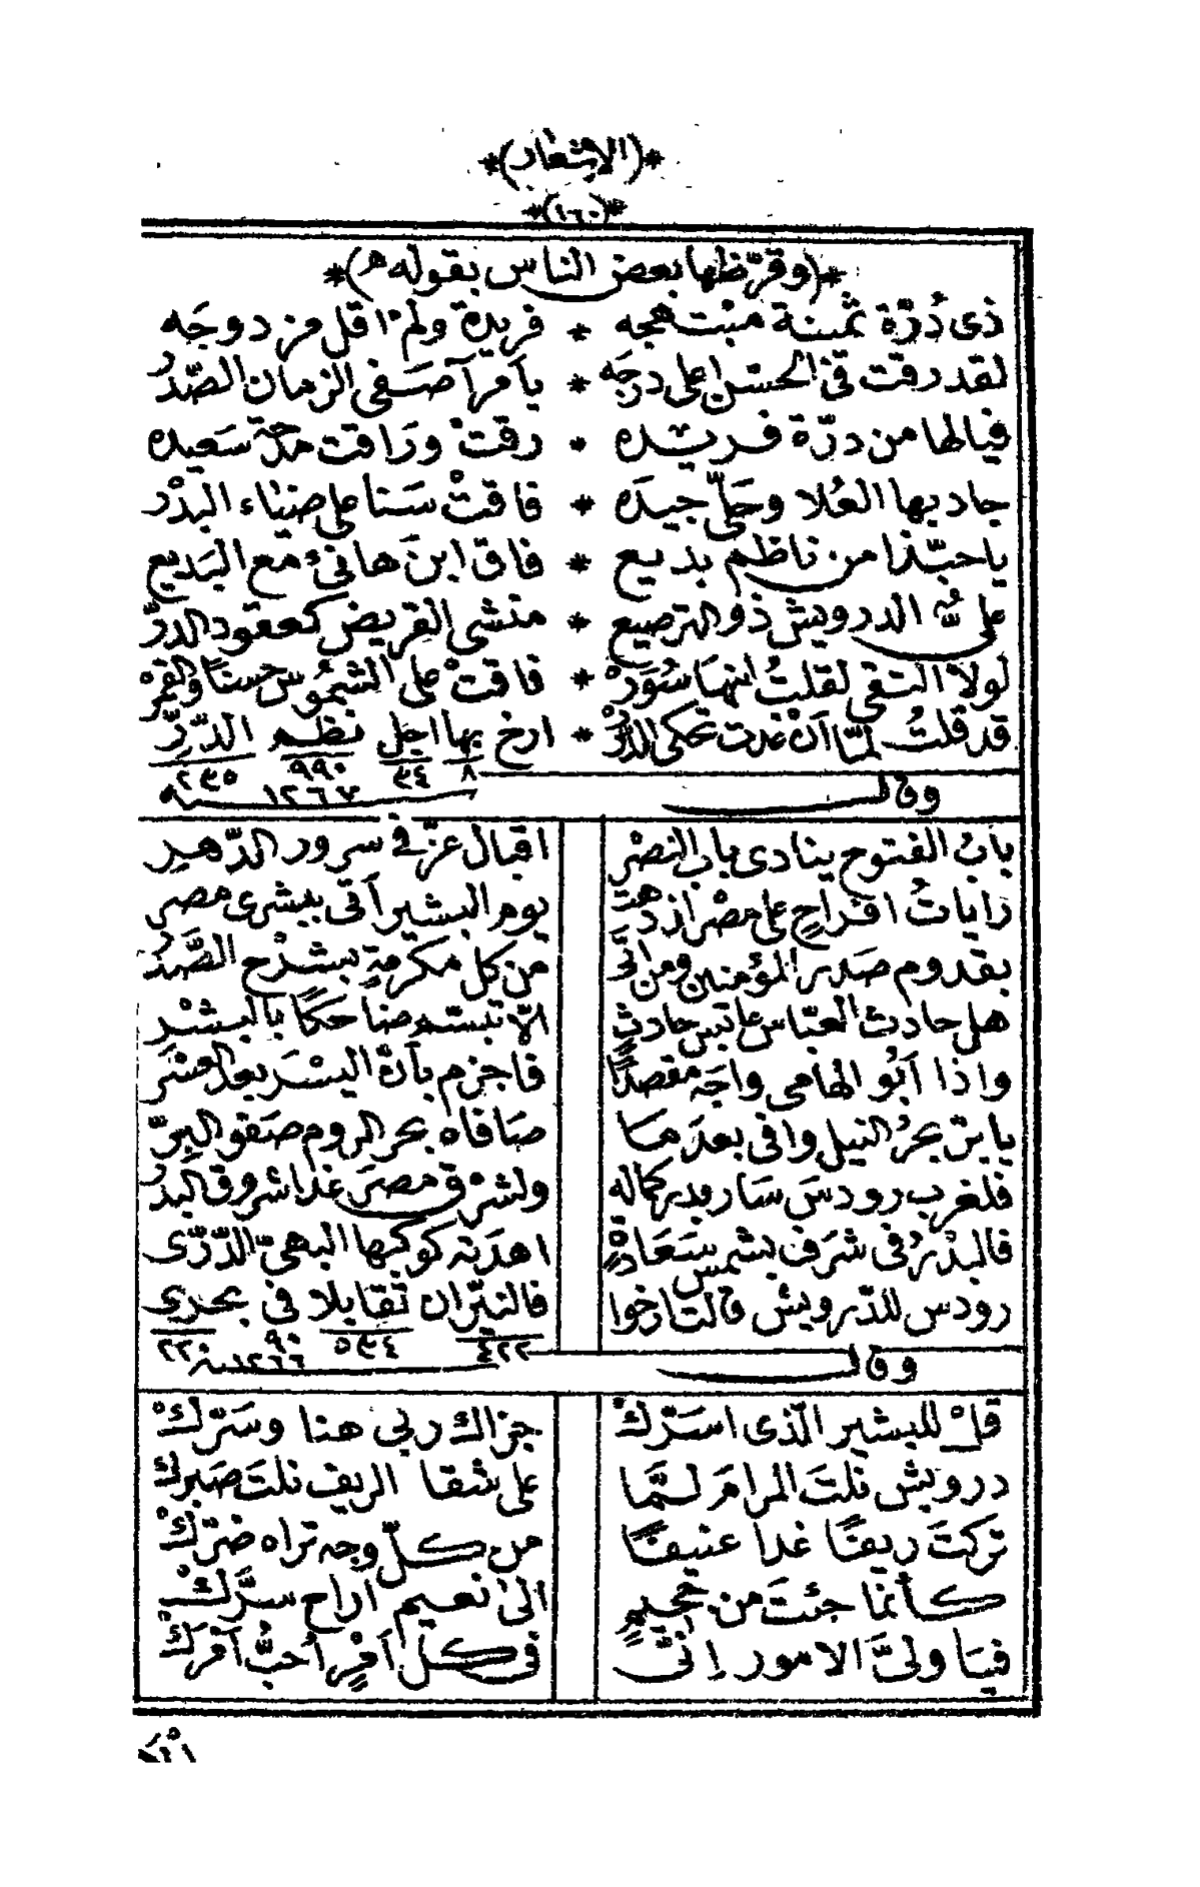 *(الاشعار)*
*(١٦٠)*
*(وقرّظها بعض الناس بقوله هـ)*
ذى دُرّة ثمينة مبتهجه * فريدة ولم اقل مزدوجَه
لقد رقت فى الحسن اعلى درجَه * يا من آصَفى الزمان الصَّدْرُ
فيالها من درّة فريده * رقتْ ورَاقت مدحة سَعيده
جاد بها العُلا وحَلّى جيدَه * فاقتْ سَنا على ضياء البدْر
يا حبّذا من ناظم بديع * فاق ابن هانئ مع البَديع
علىُّ الدرويش ذو الترصيع * منشى القريض كعقود الدرّ
لولا التقى لقلتُ انهَا سُوَرْ * فاقتْ على الشمُوس حسنًا والقمرْ
قد قلتُ لمّا آنْ غدت تحكى الدّررْ * ارخ بها اجل نظم الدّرِّ
٨ ٣٤ ٩٩٠ ٢٣٥
سنة ١٢٦٧
وقال
بابُ الفتوح ينادى باب النصْر اقبال عزّ فى سرور الدّهر
رَاياتُ افراحٍ على مصْر ازدهت يوم البشير آتى ببشرى مصر
بقدوم صَدر المؤمنين ومن اتَى من كل مكرمةٍ ببشرْح الصَّدْرُ
هل حادث العبّاس عابس حادثٍ الّا تبسّم ضاحكًا بالبشْرِ
واذا آبُو الهامى واجَه مقصدًا فاجزم بآنّ اليسْرَ بعد العسْر
يا برّ بحرُ النيل وافى بعدَ مَا صَافاه بحر الروم صَفو البِرّ
فلغرب رودسَ سَار بدر كماله ولشرْق مصرَ غدا شروق البدْرُ
فالبدْرُ فى شرَف بشمس سَعَادةٍ اهدَته كوكبها البهىّ الدّرّى
رودس للدّرويش قالت ارخوا فالنيّران تقابلا فى بحرى
٤٢٢ ٥٣٤ ٩٠ ٢٢٠
سنة ١٢٦٦
وقال
قلْ للبشير الّذى اسَرّكْ جزاك ربى هنا وسَرّكْ
درويش نلتَ المرامَ لمَّا على شقا الريف نلتَ صَبركْ
تركتَ ريفًا غدا عنيفًا من كلّ وجه تراه ضرّكْ
كأنما جئتَ من جحيمٍ الى نعيم اراح سرَّكْ
فيَا ولىَّ الامور اِنّى فى كل آمْرٍ اُحبُّ آمْرَكْ